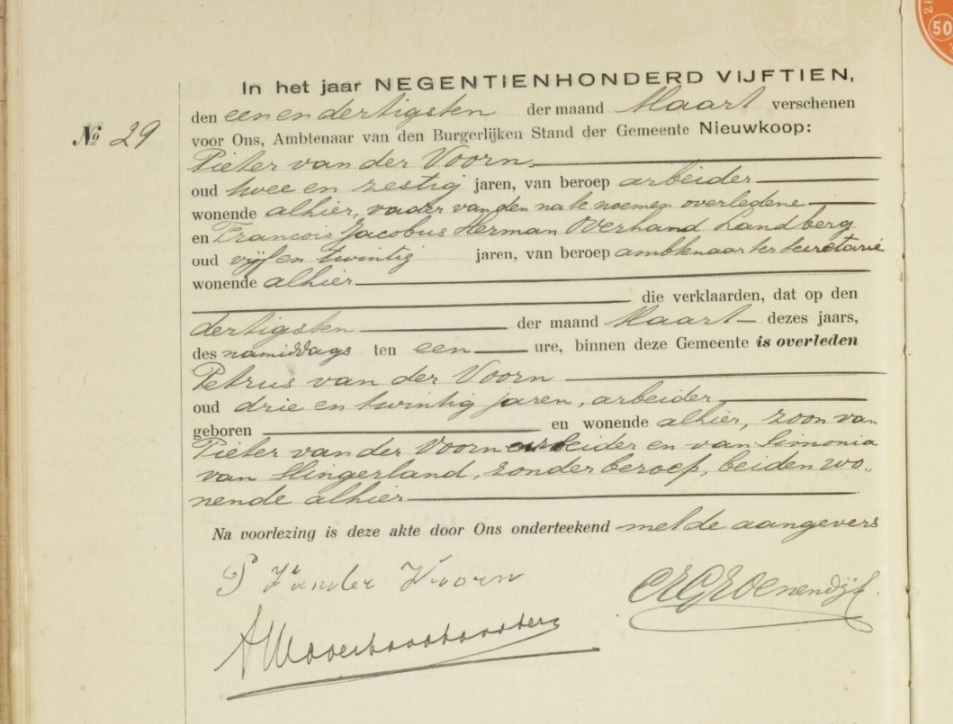 In het jaar NEGENTIENHONDERD VIJFTIEN,
den een en dertigsten der maand Maart verschenen
No 29
voor Ons, Ambtenaar van den Burgerlijken Stand der Gemeente Nieuwkoop:
Pieter van der Voorn
oud twee en zestig jaren, van beroep arbeider
wonende alhier, vader van den na te noemen overledene
en Francois Jacobus Herman Overhand Landberg
oud vijf en twintig jaren, van beroep ambtenaar ter secretarie
wonende alhier
die verklaarden, dat op den
dertigsten der maand Maart dezes jaars,
des namiddags ten een ure, binnen deze Gemeente is overleden
Petrus van der Voorn
oud drie en twintig jaren, arbeider,
geboren en wonende alhier, zoon van
Pieter van der Voorn arbeider en van Simonia
van Slingerland, zonder beroep, beiden wo„
nende alhier
Na voorlezing is deze akte door Ons onderteekend met de aangevers
P van der Voorn
Groenendijk
ZE
50